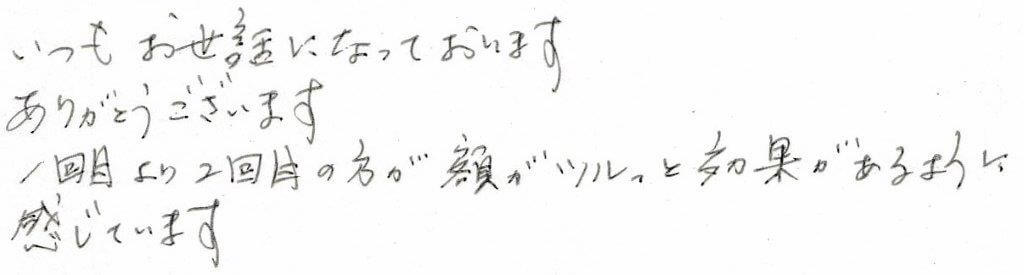 いつもお世話になっております
ありがとうございます
1回目より2回目の方が額がツルっと効果があるように
感じています